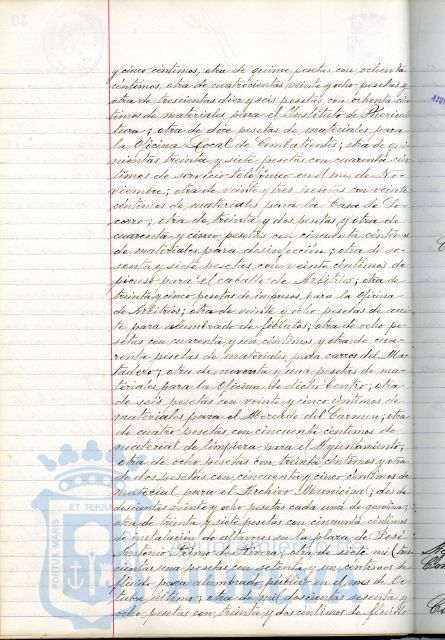 y cinco céntimos, otra de quince pesetas con ochenta
céntimos, otra de cuatrocientas veinte y ocho pesetas y
otra de trescientas diez y seis pesetas con ochenta cén-
timos de materiales para el Instituto de Puericul-
tura; otra de doce pesetas de materiales para
la Oficina Local de Combatientes; otra de qui-
nientas treinta y siete pesetas con cuarenta cén-
timos de servicio telefónico en el mes de No-
viembre; otra de veinte y tres pesetas con veinte
céntimos de materiales para la Casa de So-
corro; otra de treinta y dos pesetas y otra de
cuarenta y cinco pesetas con cincuenta céntimos
de materiales para desinfección; otra de se-
senta y siete pesetas con veinte céntimos de
pienso para el caballo de Arbitrios; otra de
treinta y cinco pesetas de impresos para la Oficina
de Arbitrios; otra de veinte y ocho pesetas de acei-
te para alumbrado de fielatos; otra de ocho pe-
setas con cuarenta y un céntimos y otra de cua-
renta pesetas de materiales para carros del Ma-
tadero; otra de noventa y una pesetas de ma-
teriales para la Oficina de dicho Centro; otra
de seis pesetas con veinte y cinco céntimos de
materiales para el Mercado del Carmen; otra
de cuatro pesetas con cincuenta céntimos de
material de limpieza para el Ayuntamiento;
otra de ocho pesetas con treinta céntimos y otra
de dos pesetas con cincuenta y cinco céntimos de
material para el Archivo Municipal; dos de
doscientas veinte y ocho pesetas cada una de gasolina;
otra de treinta y siete pesetas con cincuenta céntimos
de instalación de altavoces en la plaza de José
Antonio Primo de Rivera; otra de siete mil tres-
cientas una pesetas con setenta y un céntimos de
fluido para alumbrado público en el mes de Oc-
tubre último; otra de mil doscientas sesenta y
ocho pesetas con treinta y dos céntimos de fluido
PORTUS MARIS ET TERRAE